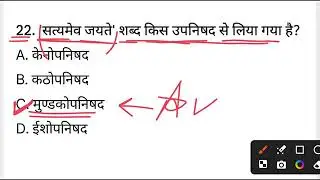 22. 'सत्यमेव जयते' शब्द किस उपनिषद से लिया गया है?
A. केनोपनिषद
B. कठोपनिषद
C. मुण्डकोपनिषद
D. ईशोपनिषद